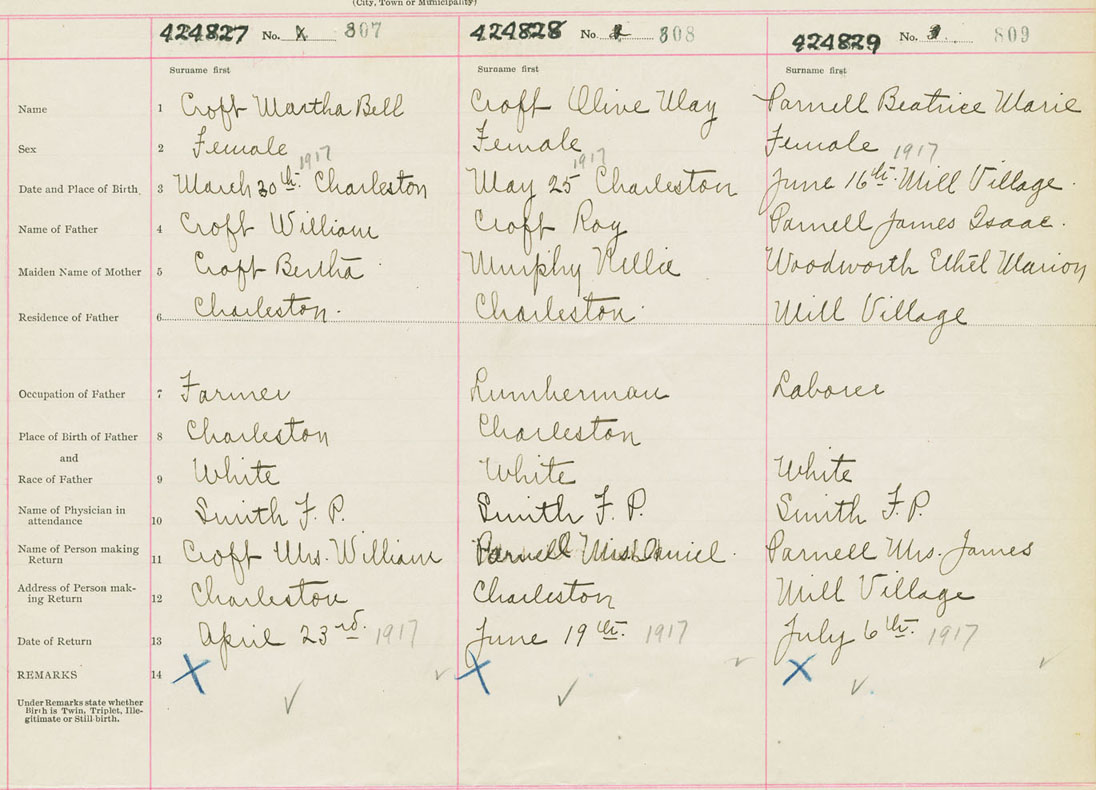 (City, Town or Municipality)
424827 No. 1 807 424828 No. 2 808 424829 No. 3. 809
Surname first Surname first Surname first
Name 1 Croft Martha Bell Croft Olive May Parnell Beatrice Marie
Sex 2 Female Female Female
Date and Place of Birth 3 March 30th. 1917 Charleston May 25 1917 Charleston June 16th. 1917 Mill Village.
Name of Father 4 Croft William Croft Roy Parnell James Isaac.
Maiden Name of Mother 5 Croft Bertha Murphy Nellie Woodworth Ethel Marion
Residence of Father 6 Charleston. Charleston. Mill Village
Occupation of Father 7 Farmer Lumberman Laborer
Place of Birth of Father 8 Charleston Charleston
and
Race of Father 9 White White White
Name of Physician in
attendance 10 Smith F. P. Smith F. P. Smith F. P.
Name of Person making
Return 11 Croft Mrs. William Parnell Mrs. Daniel. Parnell Mrs. James
Address of Person mak-
ing Return 12 Charleston Charleston Mill Village
Date of Return 13 April 23rd. 1917 June 19th. 1917 July 6th. 1917
REMARKS 14
Under Remarks state whether
Birth is Twin, Triplet, Ille-
gitimate or Still-birth.